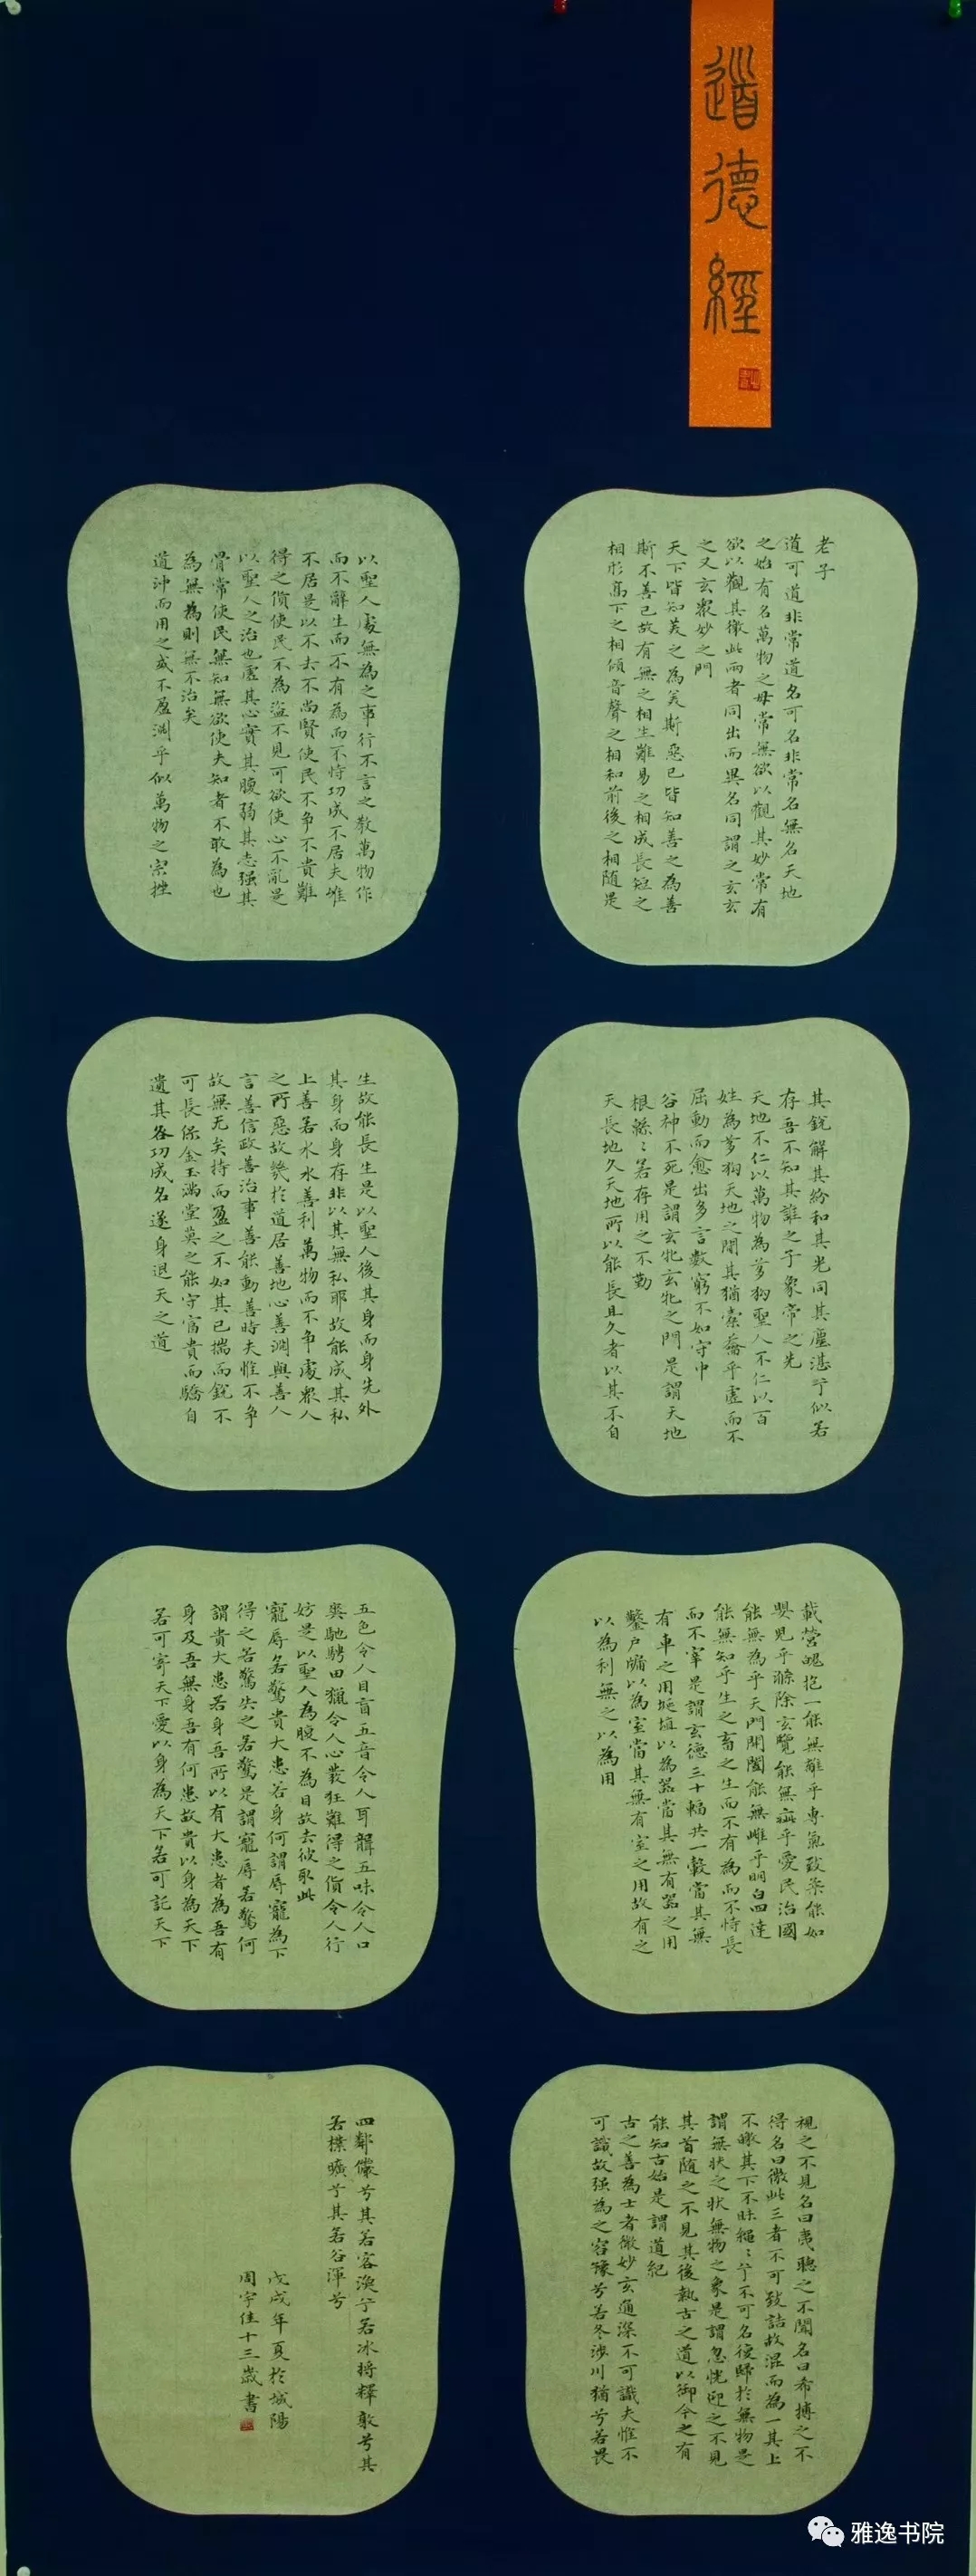 道德經
老子
道可道非常道名可名非常名無名天地
之始有名萬物之母常無欲以觀其妙常有
欲以觀其徼此兩者同出而異名同謂之玄玄
之又玄眾妙之門
天下皆知美之為美斯惡已皆知善之為善
斯不善已故有無之相生難易之相成長短之
相形高下之相傾音聲之相和前後之相隨是
以聖人處無為之事行不言之教萬物作
而不辭生而不有為而不恃功成不居夫惟
不居是以不去不尚賢使民不争不貴難
得之貨使民不為盜不見可欲使心不亂是
以聖人之治也虛其心實其腹弱其志强其
骨常使民無知無欲使夫知者不敢為也
為無為則無不治矣
道沖而用之或不盈淵乎似萬物之宗挫
其銳解其紛和其光同其塵湛兮似若
存吾不知其誰之子象帝之先
天地不仁以萬物為芻狗聖人不仁以百
姓為芻狗天地之間其猶橐籥乎虛而不
屈動而愈出多言數窮不如守中
谷神不死是謂玄牝玄牝之門是謂天地
根綿綿若存用之不勤
天長地久天地所以能長且久者以其不自
生故能長生是以聖人後其身而身先外
其身而身存非以其無私耶故能成其私
上善若水水善利萬物而不争處眾人
之所惡故幾於道居善地心善淵與善人
言善信政善治事善能動善時夫惟不争
故無尤矣持而盈之不如其已揣而銳不
可長保金玉滿堂莫之能守富貴而驕自
遺其咎功成名遂身退天之道
載營魄抱一能無離乎專氣致柔能如
嬰兒乎滌除玄覽能無疵乎愛民治國
能無為乎天門開闔能無雌乎明白四達
能無知乎生之畜之生而不有為而不恃長
而不宰是謂玄德三十輻共一轂當其無
有車之用埏埴以為器當其無有器之用
鑿戶牖以為室當其無有室之用故有之
以為利無之以為用
五色令人目盲五音令人耳聾五味令人口
爽馳騁田獵令人心發狂難得之貨令人行
妨是以聖人為腹不為目故去彼取此
寵辱若驚貴大患若身何謂辱寵為下
得之若驚失之若驚是謂寵辱若驚何
謂貴大患若身吾所以有大患者為吾有
身及吾無身吾有何患故貴以身為天下
若可寄天下愛以身為天下若可託天下
視之不見名曰夷聽之不聞名曰希搏之不
得名曰微此三者不可致詰故混而為一其上
不皦其下不昧繩繩兮不可名復歸於無物是
謂無狀之狀無物之象是謂忽恍迎之不見
其首隨之不見其後執古之道以御今之有
能知古始是謂道紀
古之善為士者微妙玄通深不可識夫惟不
可識故强為之容豫兮若冬涉川猶兮若畏
四鄰儼兮其若客渙兮若冰將釋敦兮其
若樸曠兮其若谷渾兮
戊戌年夏於城陽
周宇佳十三歲書
雅逸书院